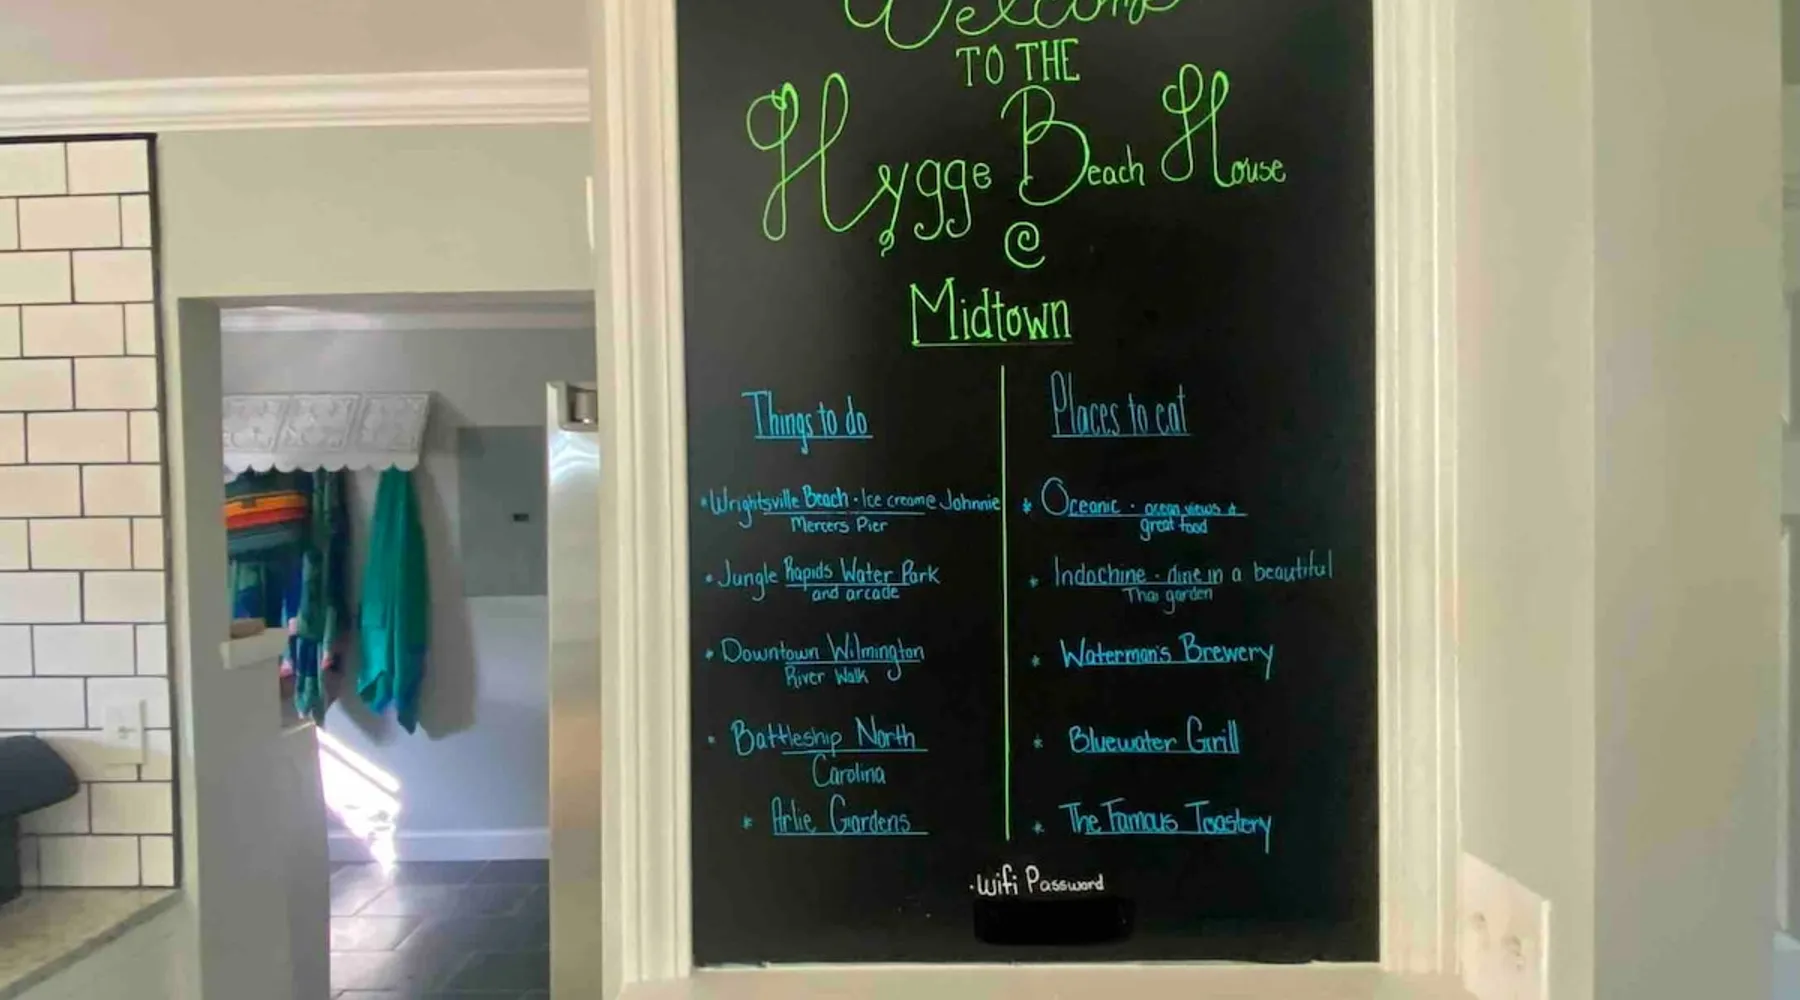 Welcome
TO THE
Hygge Beach House
@
Midtown
Things to do
* Wrightsville Beach - Ice creame Johnnie
Mercers Pier
* Jungle Rapids Water Park
and arcade
* Downtown Wilmington
River Walk
* Battleship North
Carolina
* Arlie Gardens
Places to eat
* Oceanic - ocean views &
great food
* Indochine - dine in a beautiful
Thai garden
* Waterman's Brewery
* Bluewater Grill
* The Famous Toastery
· Wifi Password